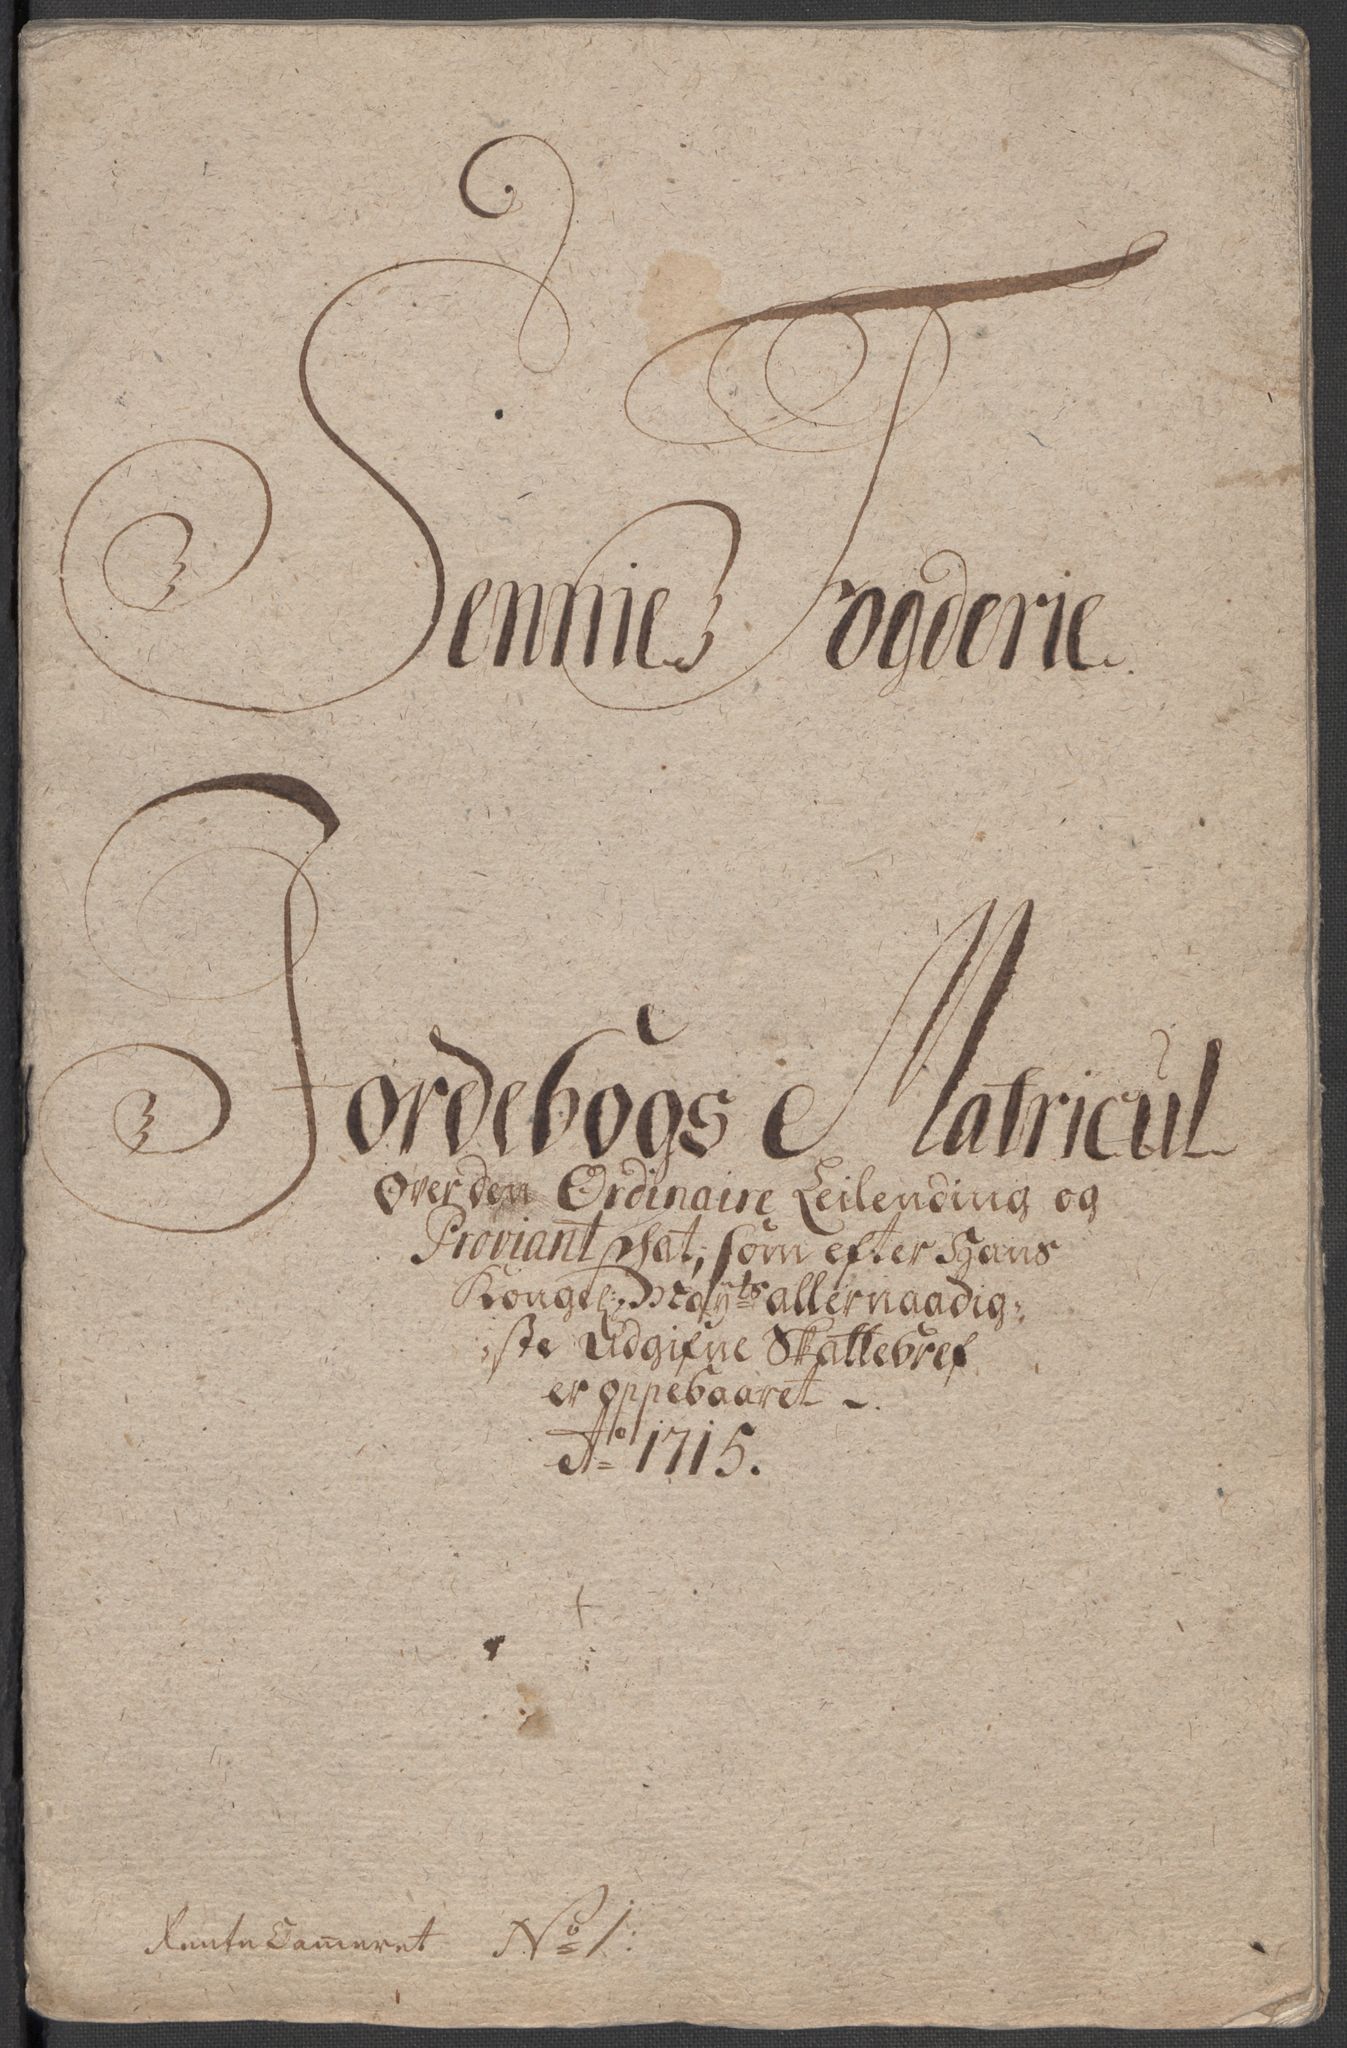 Sennies Fogderie
Jordebogs Matricul
over den Ordinaire Leilending og
Proviant Skat, som efter Hans
Kongel: Mayts allernaadig-
ste Udgifne Skattebref
er oppebaaret
Ao 1715.
Rente Cameret No 1: